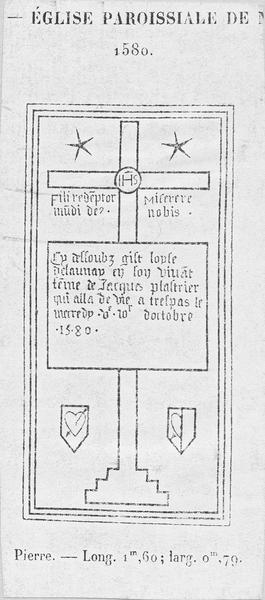 — ÉGLISE PAROISSIALE DE
1580.
IHS
Fili redẽptor Miserere
mũdi de9. nobis .
Cy dessoubz gist loyse
delaunay eñ son vivãt
fẽme de Jacques plastrier
qui alla de vie a trespas le
mercredy doctobre
.15.80.
Pierre. — Long. 1m,60; larg. 0m,79.